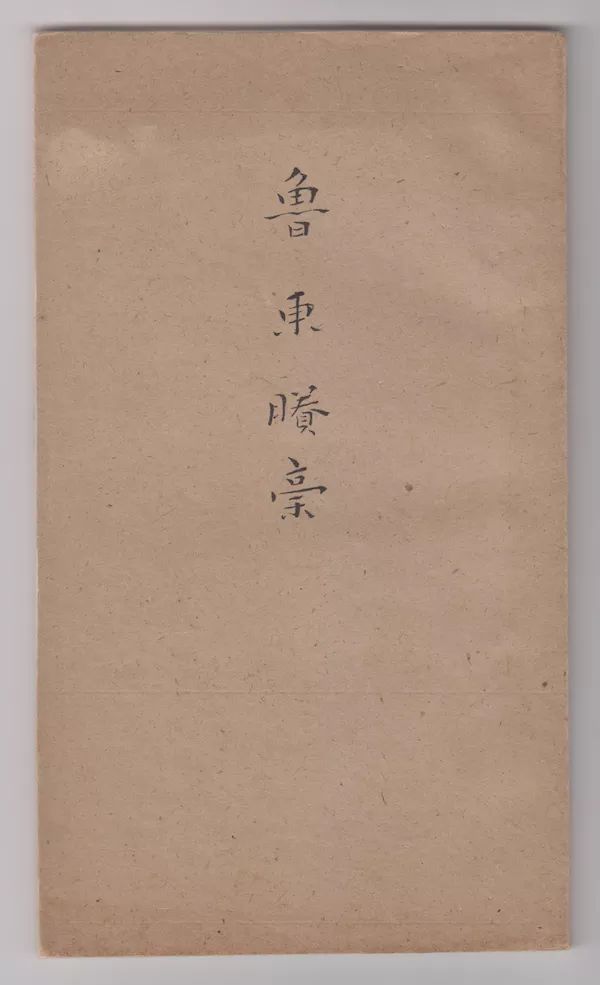 魯東賸稾